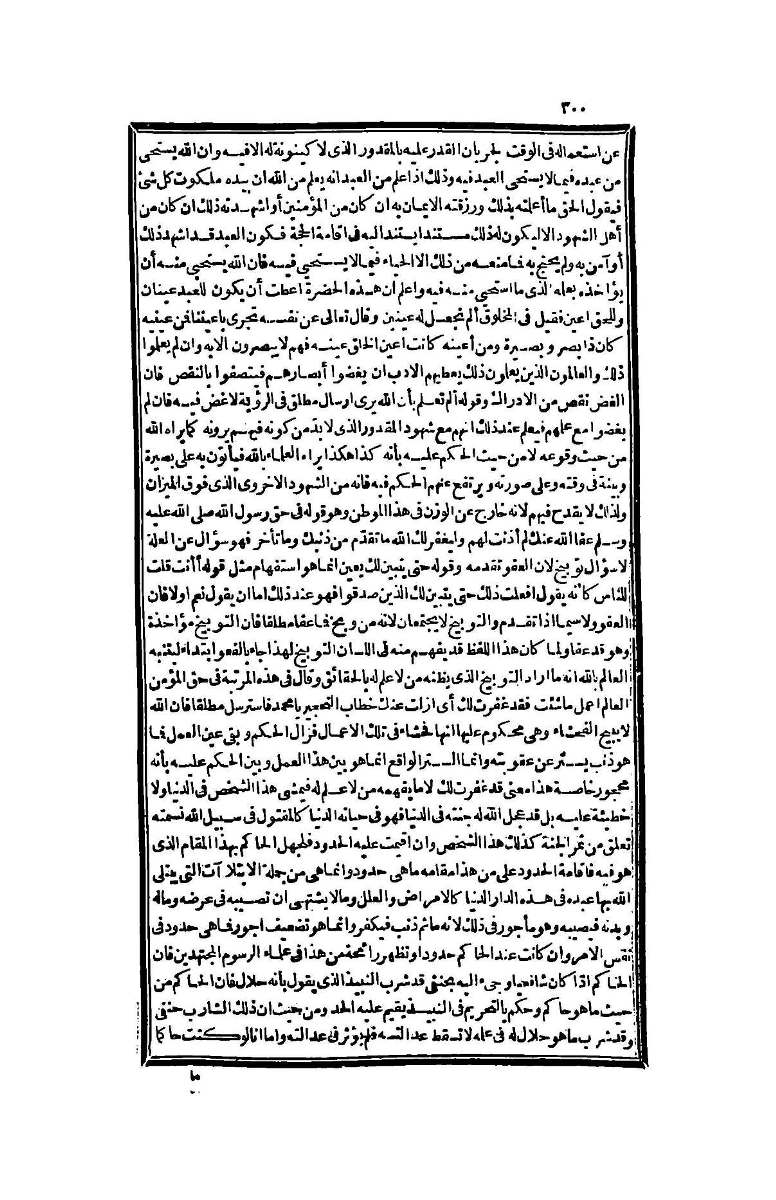 ٣٠٠
عن استعماله فى الوقت لجريان القدر عليه بالمقدور الذى لا كينونة له الا فيه وان الله يستحيى
من عبده فيما لا يستحيى العبد فيه وذلك اذا علم من العبد انه يعلم من الله ان بيده ملكوت كل شئ
فيقول الحق ما أعلمته بذلك ورزقته الايمان به ان كان من المؤمنين أو اشهدته ذلك ان كان من
أهل الشهود الا ليكون له ذلك مستندا يستند اليه فى اقامة الحجة فكون العبد قد اشهد ذلك
أو آمن به ولم يحتج به فما منعه من ذلك الا الحياء فيما لا يستحيى فيه فان الله يستحيى منه أن
يؤاخذه بعمله الذى ما استحيى منه فيه واعلم ان هذه الحضرة اعطت أن يكون للعبد عينان
وللحق اعين فقيل فى المخلوق ألم نجعل له عينين وقال تعالى عن نفسه تجرى باعيننا فمن عينيه
كان ذا بصر وبصيرة ومن أعينه كانت أعين الخلق عينه فهم لا يبصرون الا به وان لم يعلموا
ذلك والعالمون الذين يعلمون ذلك يعطيهم الادب ان يغضوا أبصارهم فيتصفوا بالنقص فان
الغض نقص من الادراك وقوله ألم تعلم بأن الله يرى ارسال مطلق فى الرؤية لا غض فيه فان لم
يغضوا مع علمهم فيعلم عند ذلك انهم مع شهود المقدور الذى لا بد من كونه فهم يرونه كما يراه الله
من حيث وقوعه لا من حيث الحكم عليه بأنه كذا هكذا يراه العلماء بالله فيأتون به على بصيرة
وبينة فى وقته وعلى صورته ويرتفع عنهم الحكم فيه فانه من الشهود الاخروى الذى فوق الميزان
ولذلك لا يقدح فيهم لانه خارج عن الوزن فى هذا الموطن وهو قوله فى حق رسول الله صلى الله عليه
وسلم عفا الله عنك لم أذنت لهم وليغفر لك الله ما تقدم من ذنبك وما تأخر فهو سؤال عن العلة
لا سؤال توبيخ لان العفو تقدمه وقوله حتى يتبين لك يعين انما هو استفهام مثل قوله أأنت قلت
للناس كأنه يقول افعلت ذلك حتى يتبين لك الذين صدقوا فهو عند ذلك اما ان يقول نعم او لا فان
العفو ولا سيما اذا تقدم والتوبيخ لا يجتمعان لانه من وبخ فما عفا مطلقا فان التوبيخ مؤاخذة
وهو قد عفا ولما كان هذا اللفظ قد يفهم منه فى اللسان التوبيخ لهذا جاء بالعفو ابتداء ليتنبه
العالم بالله انه ما اراد التوبيخ الذى يظنه من لا علم له بالحقائق وقال فى هذه المرتبة فى حق المؤمن
العالم اعمل ما شئت فقد غفرت لك أى ازلت عنك خطاب التحجير يا محمد فاسترسل مطلقا فان الله
لا يبيح الفحشاء وهى محكوم عليها انها فحشاء فى تلك الاعمال فزال الحكم وبقى عين العمل فما
هو ذنب يستر عن عقوبته وانما الستر الواقع انما هو بين هذا العمل وبين الحكم عليه بأنه
محجور خاصة هذا معنى قد غفرت لك لا ما يفهمه من لا علم له فيمشى هذا الشخص فى الدنيا ولا
خطيئة عليه بل قد عجل الله له جنته فى الدنيا فهو فى حياته الدنيا كالمقتول فى سبيل الله نسمته
تعلق من ثمر الجنة كذلك هذا الشخص وان اقيمت عليه الحدود فلجهل الحاكم بهذا المقام الذى
هو فيه فاقامة الحدود على من هذا مقامه ما هى حدود وانما هى من جملة الابتلاآت التى يبتلى
الله بها عبده فى هذه الدار الدنيا كالامراض والعلل وما لا يشتهى ان تصيبه فى عرضه وماله
وبدنه فيصيبه وهو مأجور فى ذلك لانه ما ثم ذنب فيكفر وانما هو تضعيف اجور فما هى حدود فى
نفس الامر وان كانت عند الحاكم حدودا وتظهر رائحة من هذا فى علماء الرسوم المجتهدين فان
الحاكم اذا كان شافعيا وجىء اليه بحنفى قد شرب النبيذ الذى يقول بأنه حلال فان الحاكم من
حيث ما هو حاكم وحكم بالتحريم فى النبيذ يقيم عليه الحد ومن حيث ان ذلك الشارب حنفى
وقد شرب ما هو حلال له فى علمه لا تسقط عدالته فلم يؤثر فى عدالته واما انا لو كنت حاكما
ما